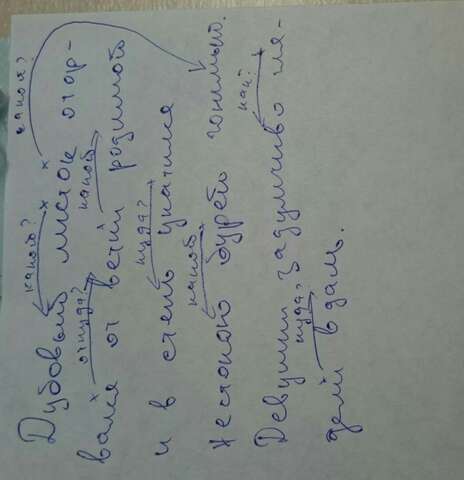 какой? какой?
Дубовый листок отор-
откуда? какой
вался от ветки родимой
куда?
и в степь укатился
какой
жестокою бурей гонимый.
как?
Девушки задумчиво гля-
куда?
дели вдаль.